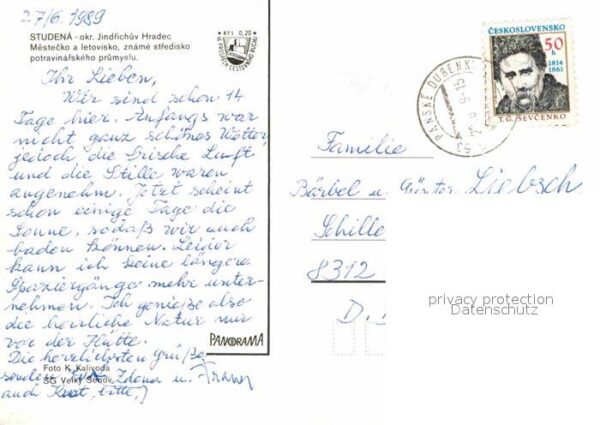 27/6 1989
STUDENÁ - okr. Jindřichův Hradec
Městečko a letovisko, známé středisko
potravinářského průmyslu.
Kčs 0,20
Ihr Lieben,
Wir sind schon 14
Tage hier. Anfangs war
nicht ganz schönes Wetter,
jedoch die frische Luft
und die Stille waren
angenehm. Jetzt scheint
schon einige Tage die
Sonne, sodaß wir auch
baden können. Leider
kann ich keine längere
Spaziergänge mehr unter-
nehmen. Ich genieße also
die herrliche Natur nur
vor der Hütte.
Die herzlichsten Grüße
senden Zdena u. Franz
auch bitte,
Foto K. Kalivoda
SG Velký Šenov
PANORAMA
PANSKÉ DUBENKY
ČESKOSLOVENSKO
50
h
1814
1861
T.G. ŠEVČENKO
Familie
Bärbel u. Günter Liebsch
Schille
8312
D.
privacy protection
Datenschutz